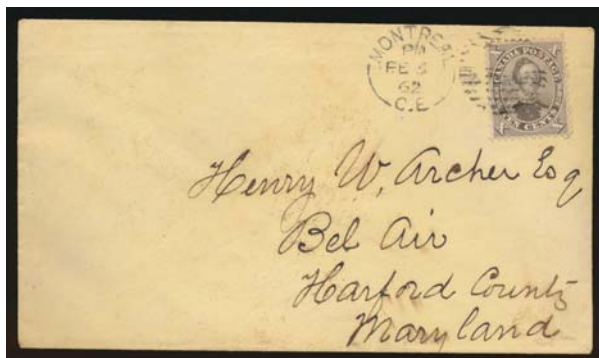 MONTREAL
PM
FE 5
62
C.E
CANADA POSTAGE
TEN CENTS
Henry W, Archer Esq
Bel Air
Harford County
Maryland